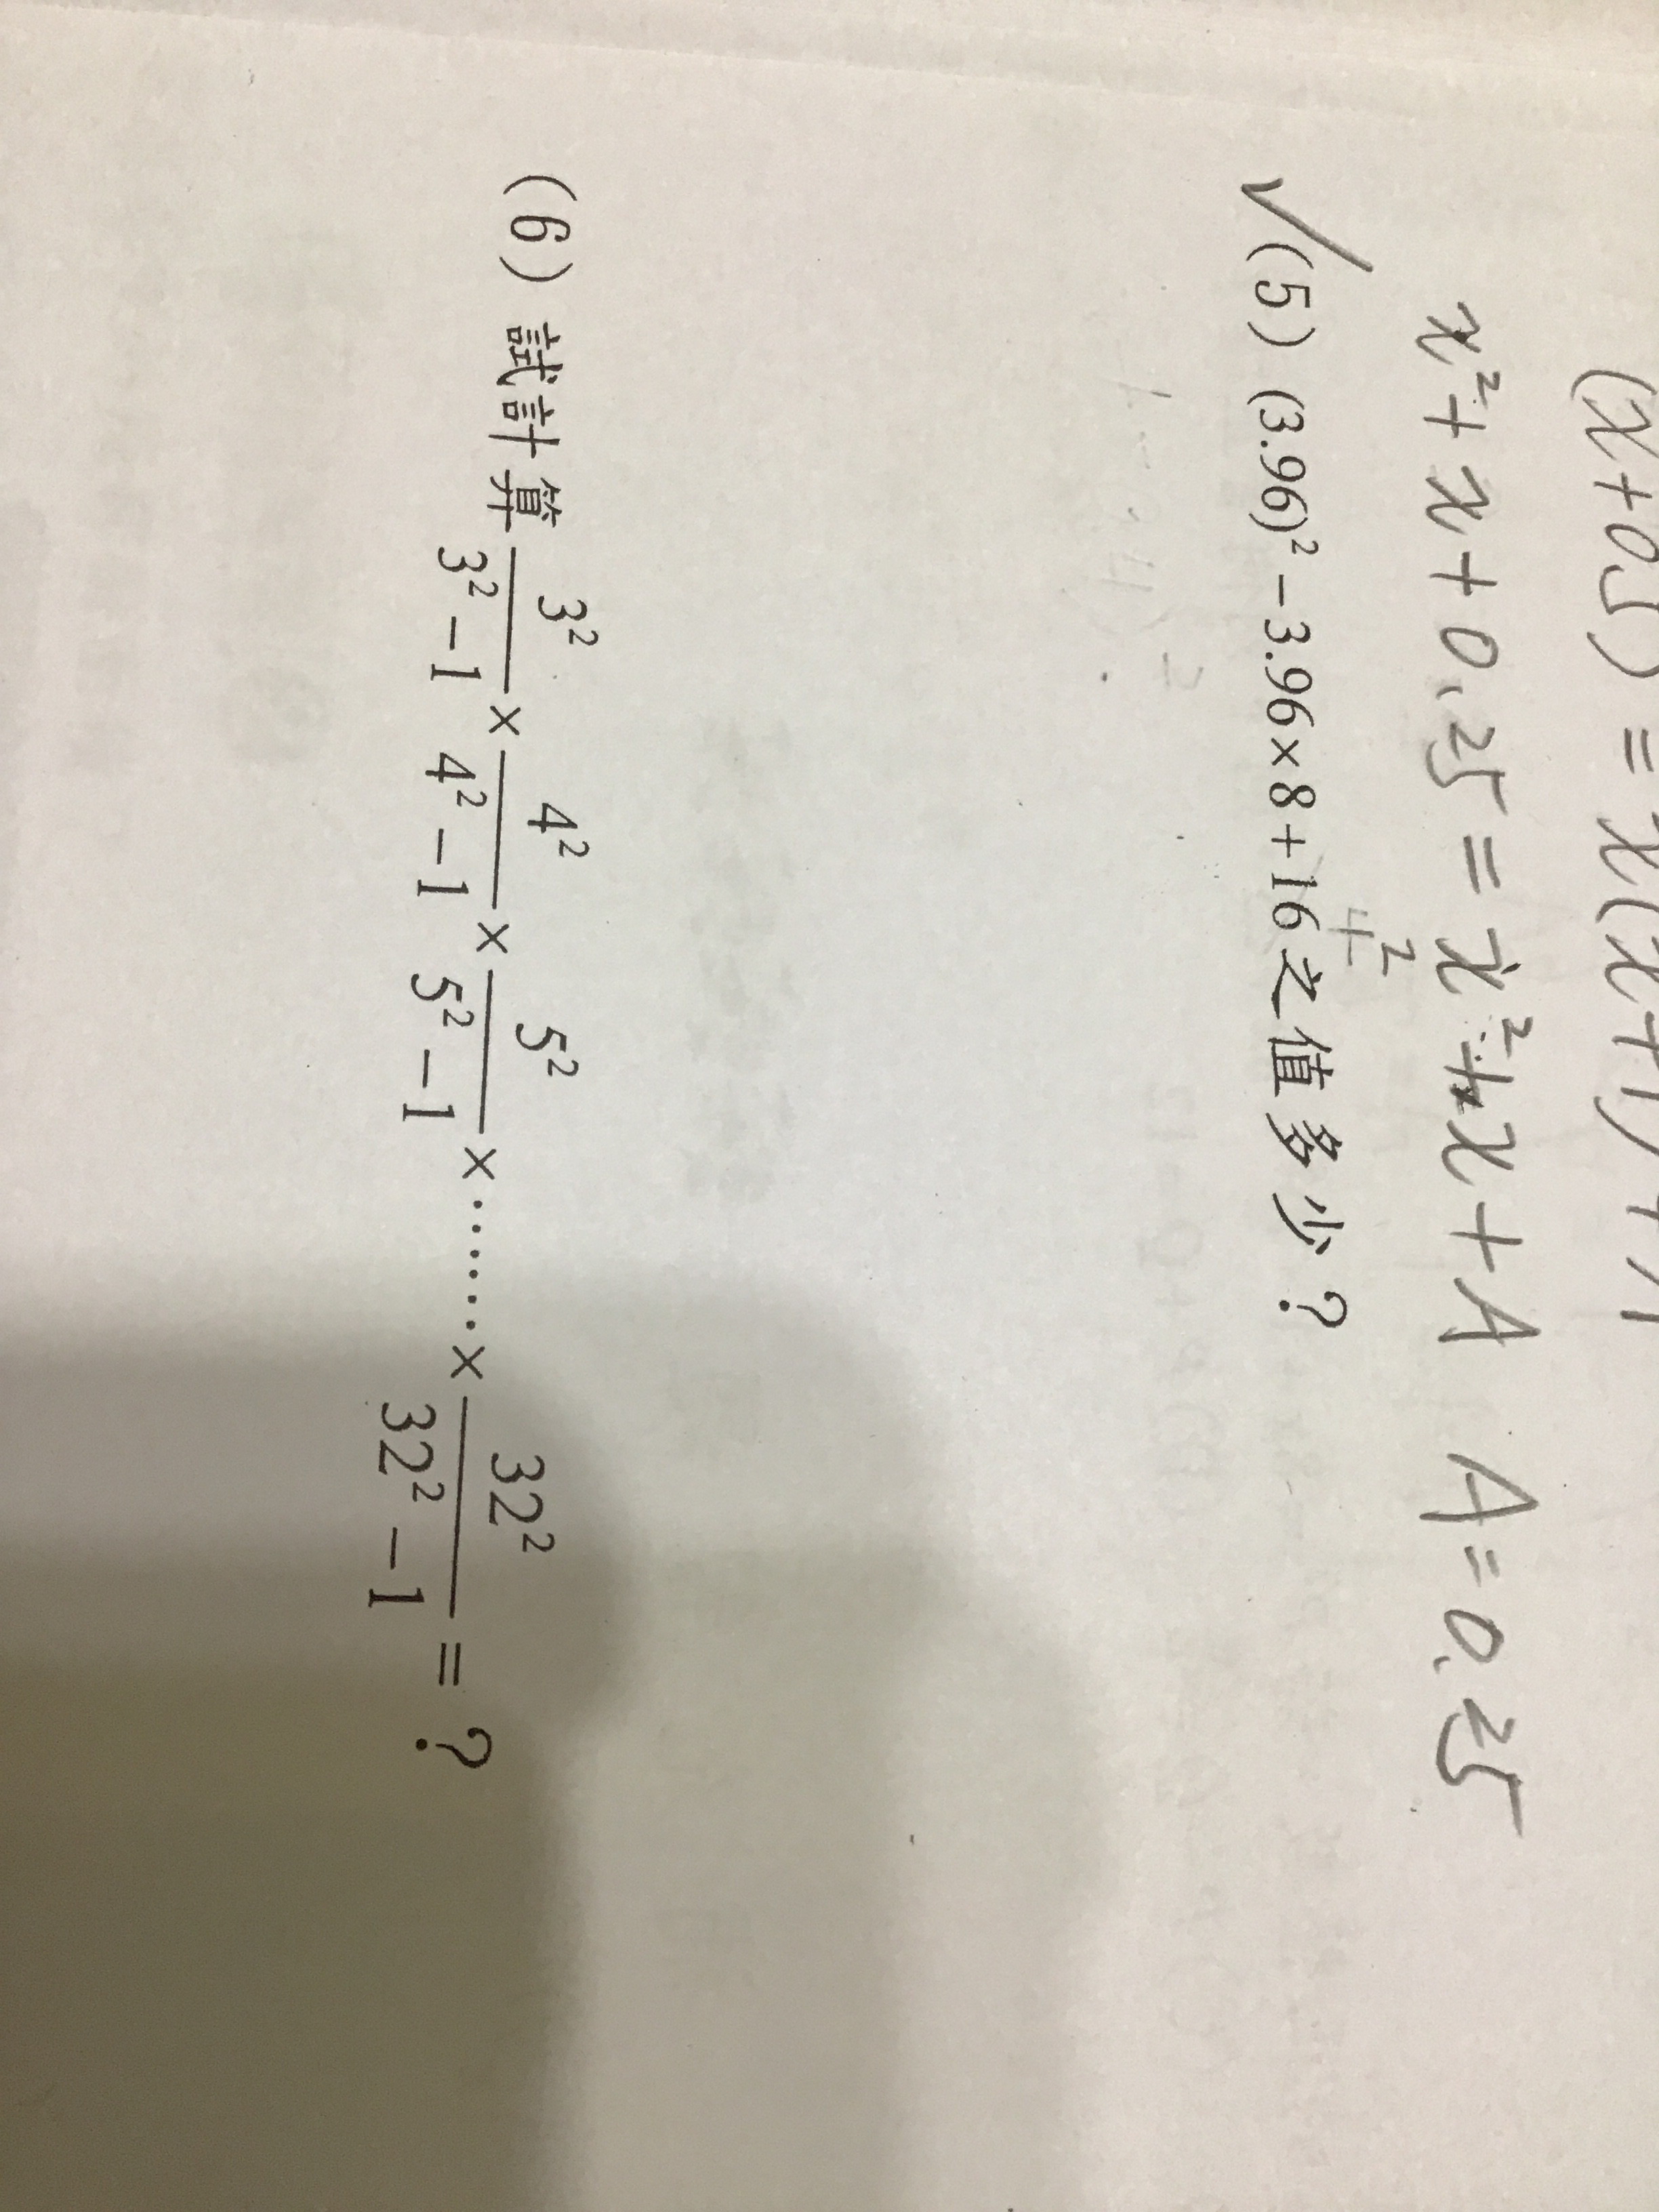 (x+0.5) = x(x+1)+A
x²+x+0.25=x²+x+A A=0.25
✓(5) (3.96)²−3.96×8+16之值多少？
4²
(6) 試計算 3²/(3²−1) × 4²/(4²−1) × 5²/(5²−1) ×……× 32²/(32²−1) =？